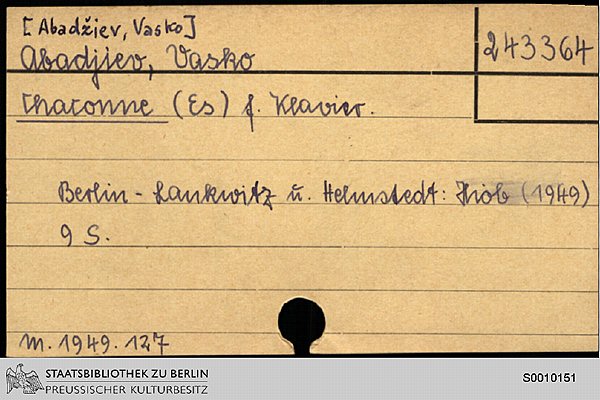 [Abadžiev, Vasko]
Abadjiev, Vasko
243364
Chaconne (Es) f. Klavier.
Berlin-Lankwitz u. Helmstedt: Hiob (1949)
9 S.
M. 1949. 127
STAATSBIBLIOTHEK ZU BERLIN
PREUSSISCHER KULTURBESITZ
S0010151